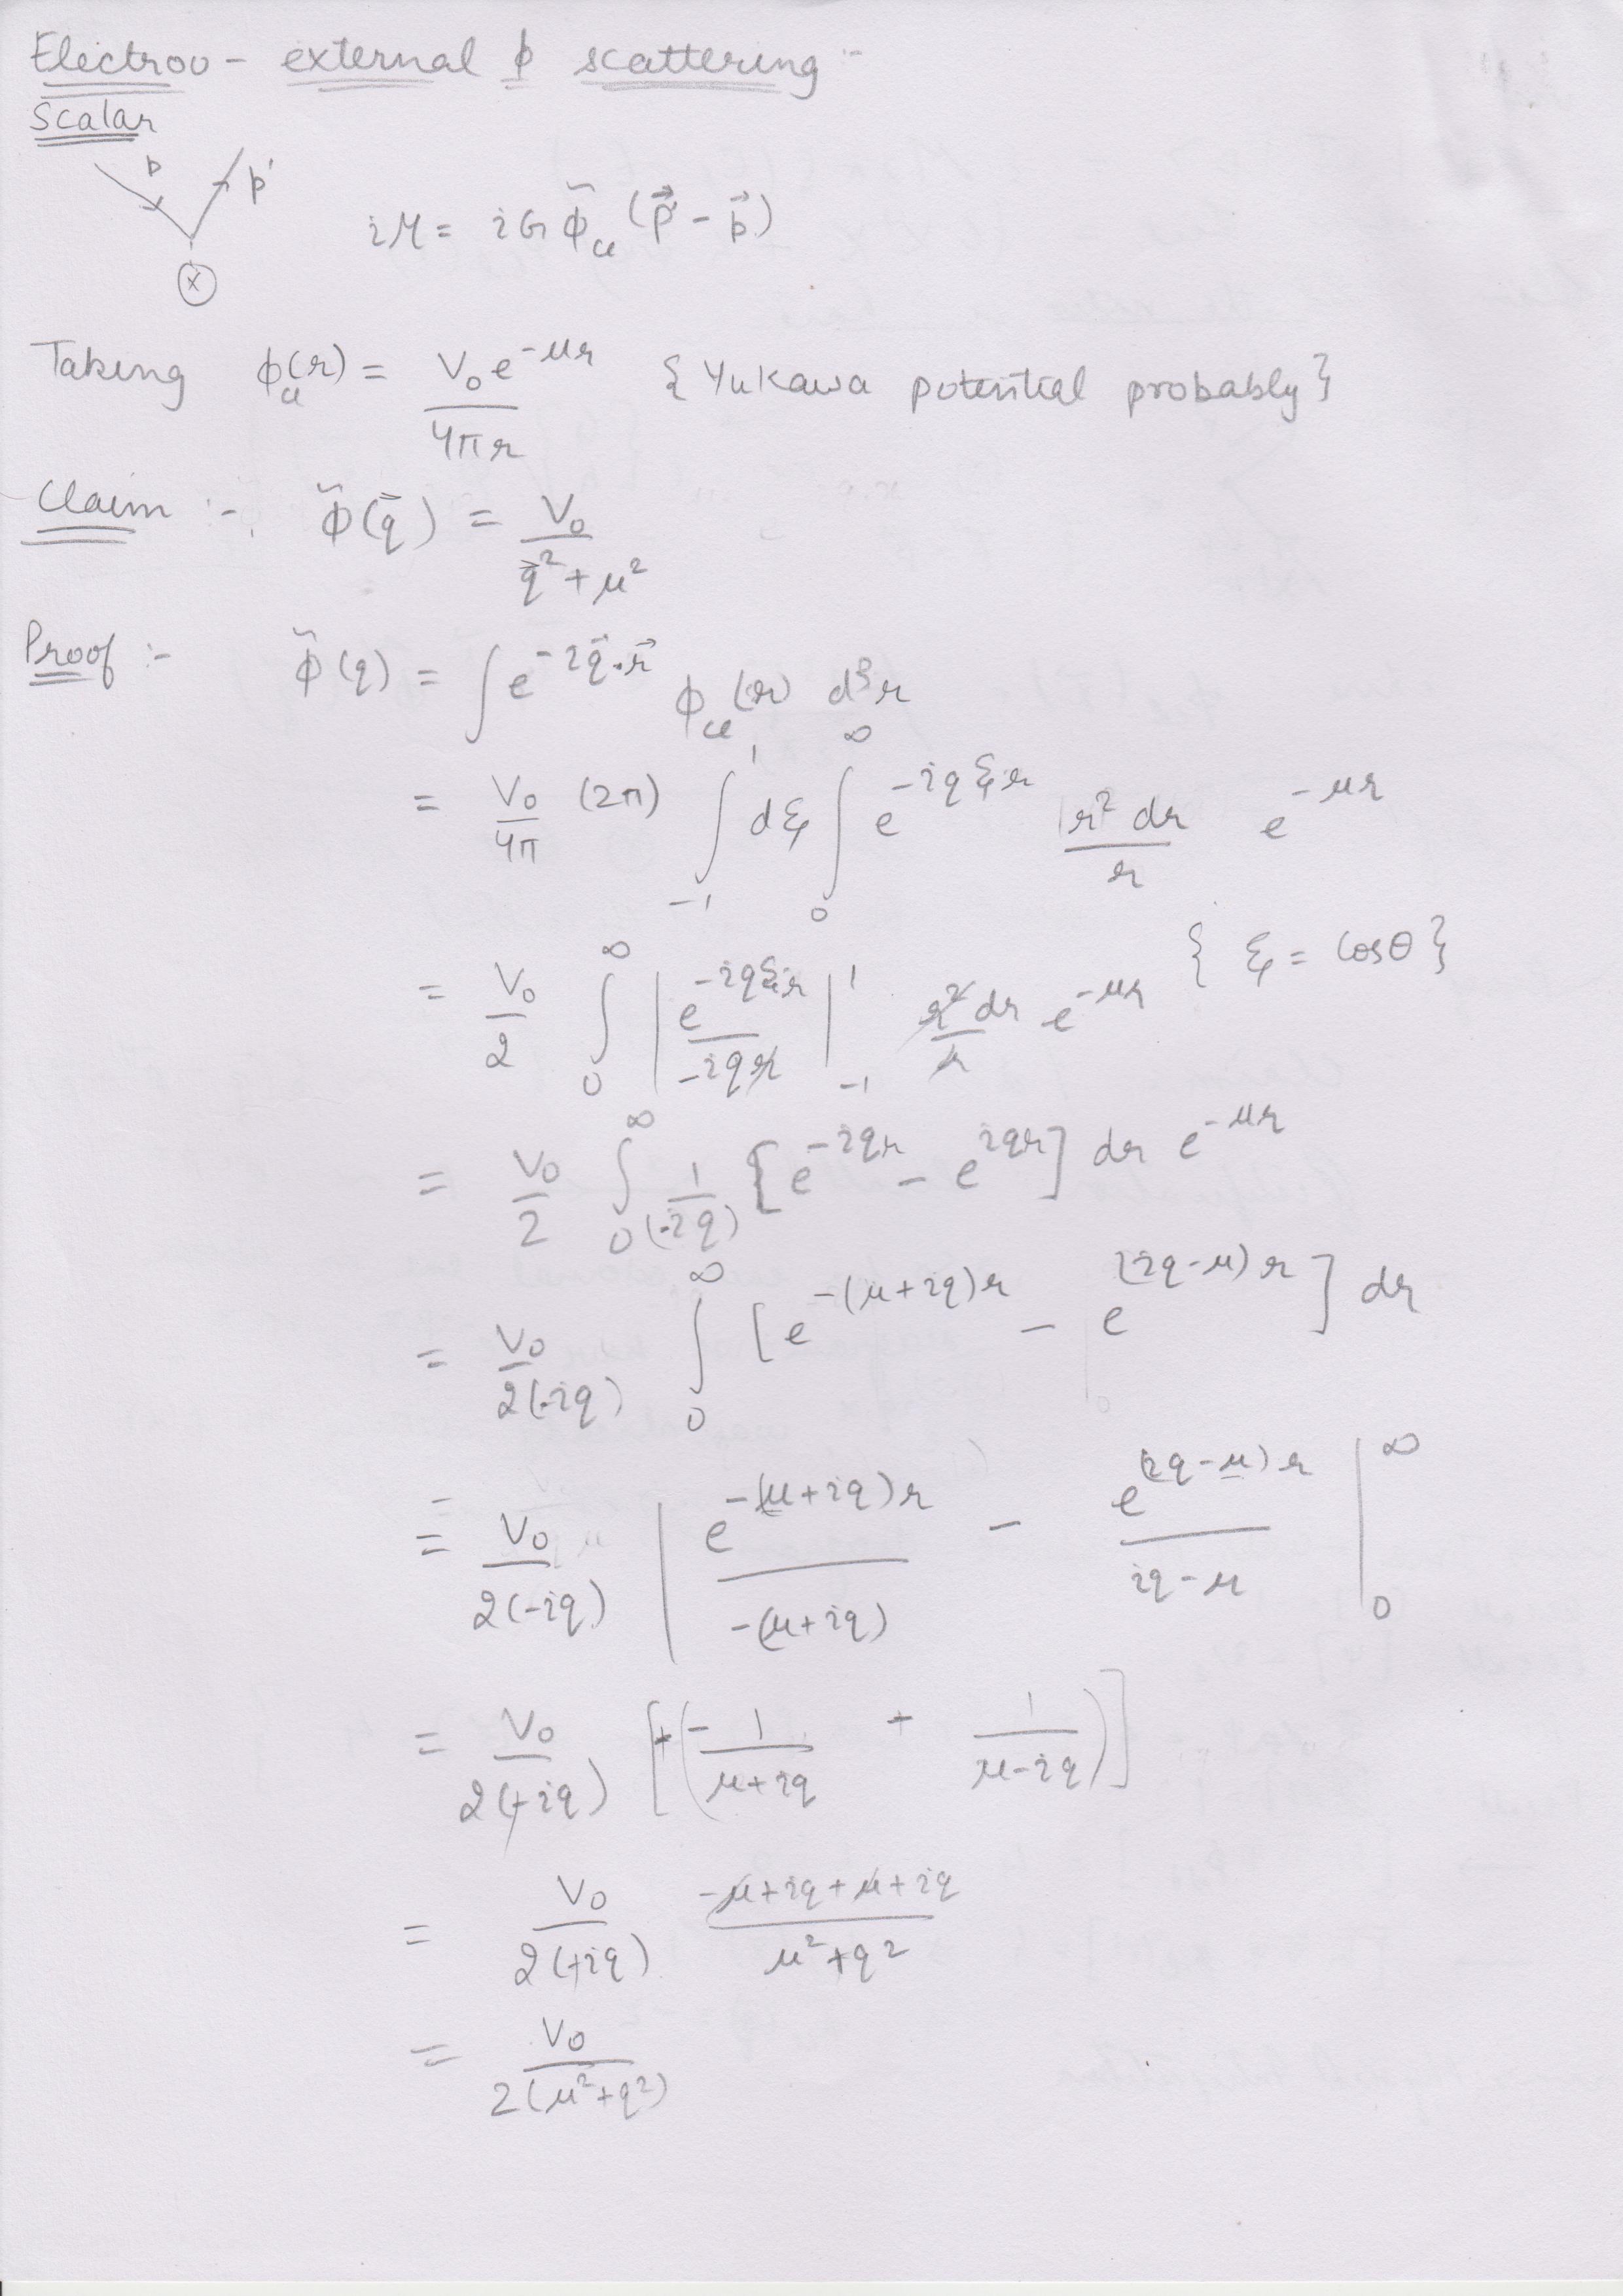 Electron - external ϕ scattering :-
Scalar
p p'
iM = i G ϕ̃_cl (p⃗' - p⃗)
x
Taking ϕ_cl(r) = V₀ e^{-μr} / 4πr { Yukawa potential probably }
Claim :- ϕ̃(q⃗) = V₀ / (q⃗² + μ²)
Proof :- ϕ̃(q) = ∫ e^{-iq⃗·r⃗} ϕ_cl(r) d³r
= V₀/4π (2π) ∫_{-1}^{1} dξ ∫_0^∞ e^{-iqξr} r² dr / r e^{-μr}
{ ξ = cosθ }
= V₀/2 ∫_0^∞ | e^{-iqξr} / -iqr |_{-1}^{1} r² dr / r e^{-μr}
= V₀/2 ∫_0^∞ 1/(-iq) [ e^{-iqr} - e^{iqr} ] dr e^{-μr}
= V₀/2(-iq) ∫_0^∞ [ e^{-(μ+iq)r} - e^{(iq-μ)r} ] dr
= V₀/2(-iq) | e^{-(μ+iq)r} / -(μ+iq) - e^{(iq-μ)r} / iq-μ |_0^∞
= V₀/2(+iq) [ + ( - 1/μ+iq + 1/μ-iq ) ]
= V₀/2(+iq) -μ+iq+μ+iq / μ²+q²
= V₀ / 2(μ²+q²)